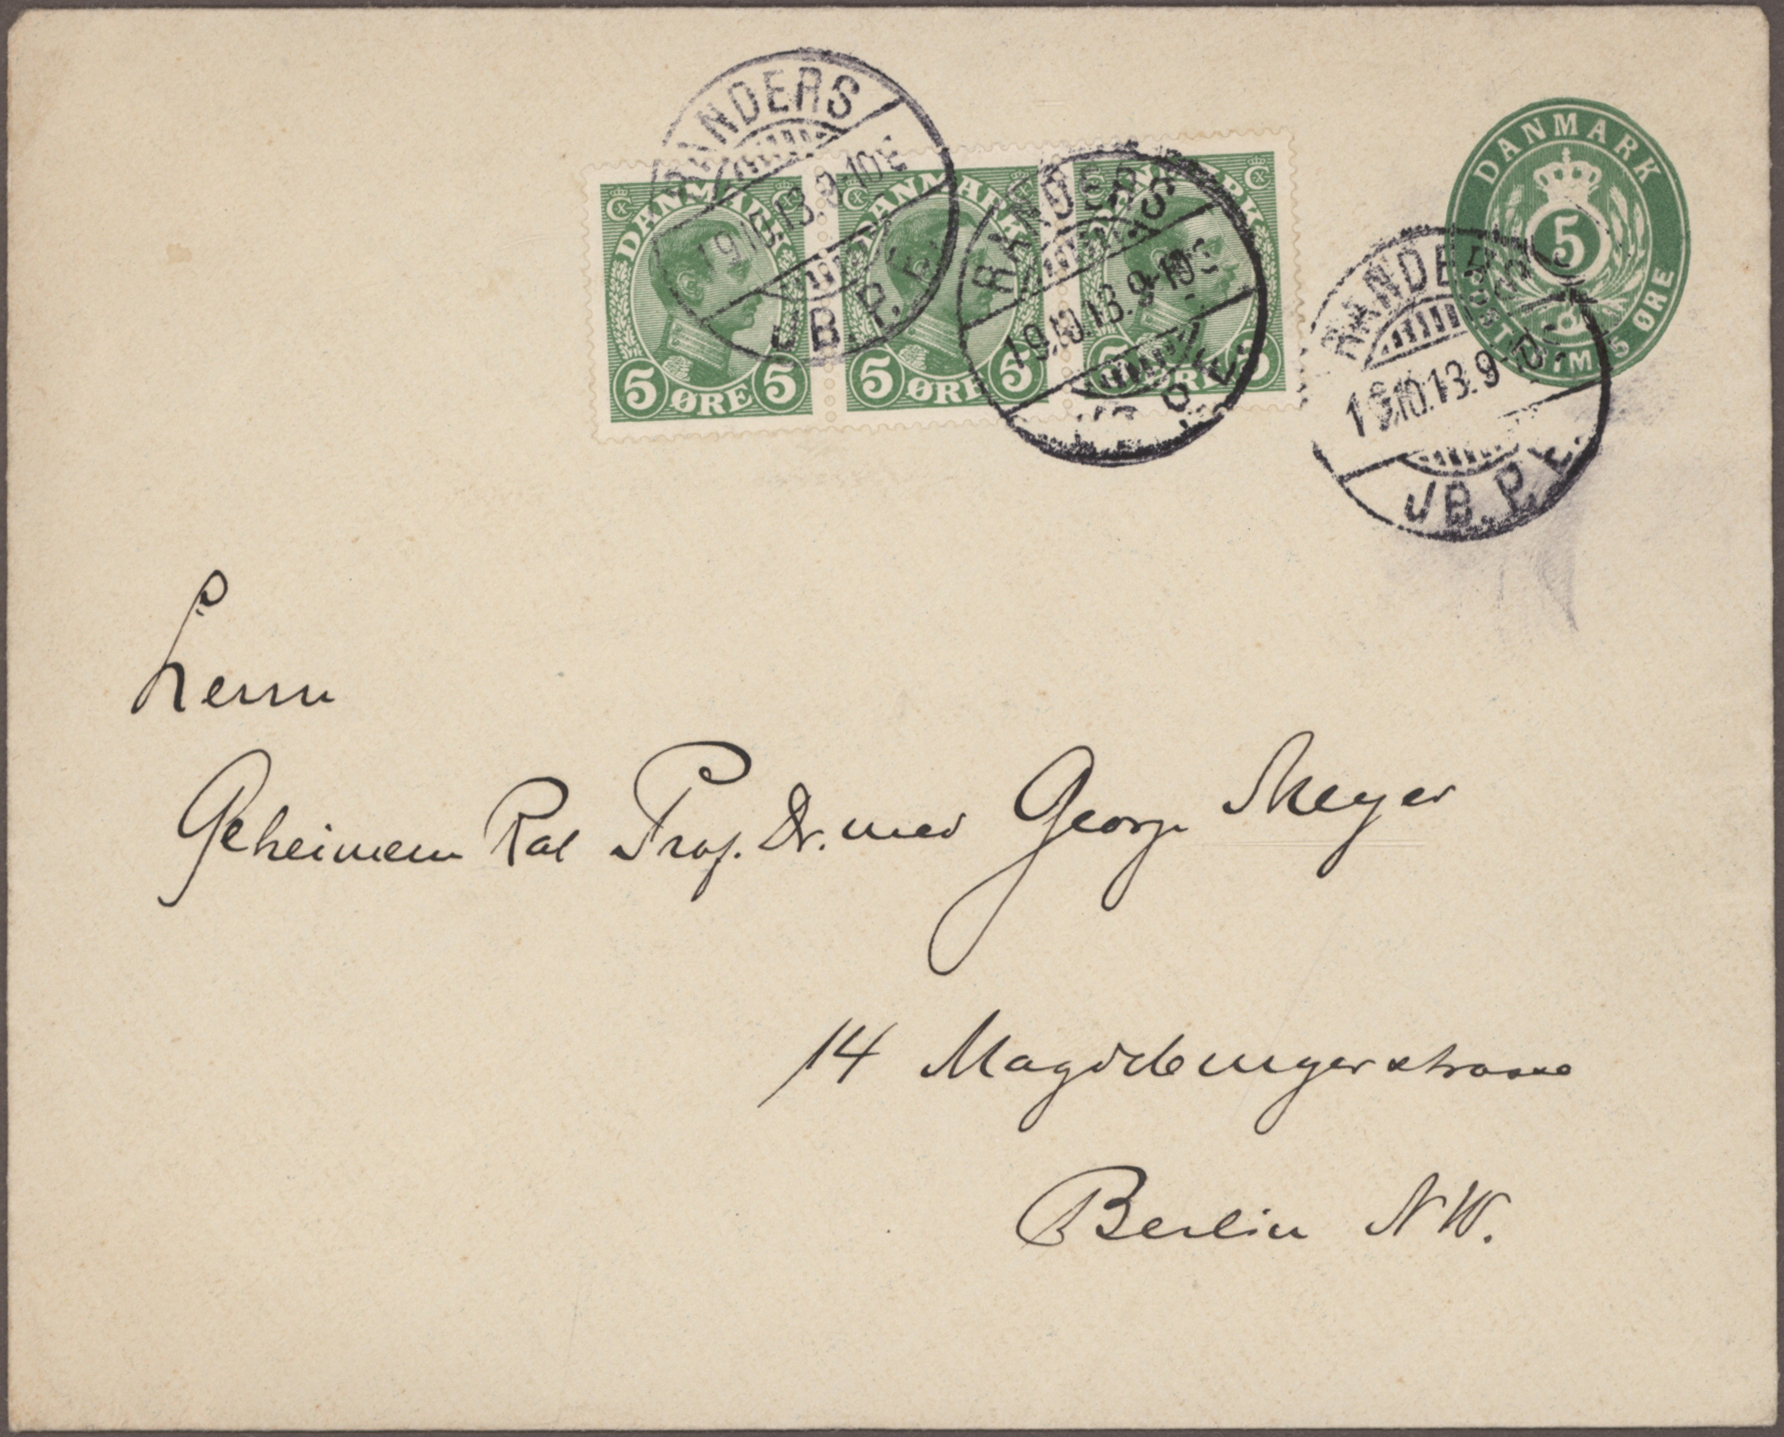 RANDERS
19.10.13. 9-10E
JB.P.E.
RANDERS
19.10.13. 9-10E
JB.P.E.
DANMARK
5 ØRE 5
DANMARK
5 ØRE 5
DANMARK
5 ØRE 5
DANMARK
5
POSTFRIM. 5 ØRE
RANDERS
19.10.13. 9-10E
JB.P.E.
Herrn
Geheimem Rat Prof. Dr. med Georg Meyer
14 Magdeburgerstrasse
Berlin NW.